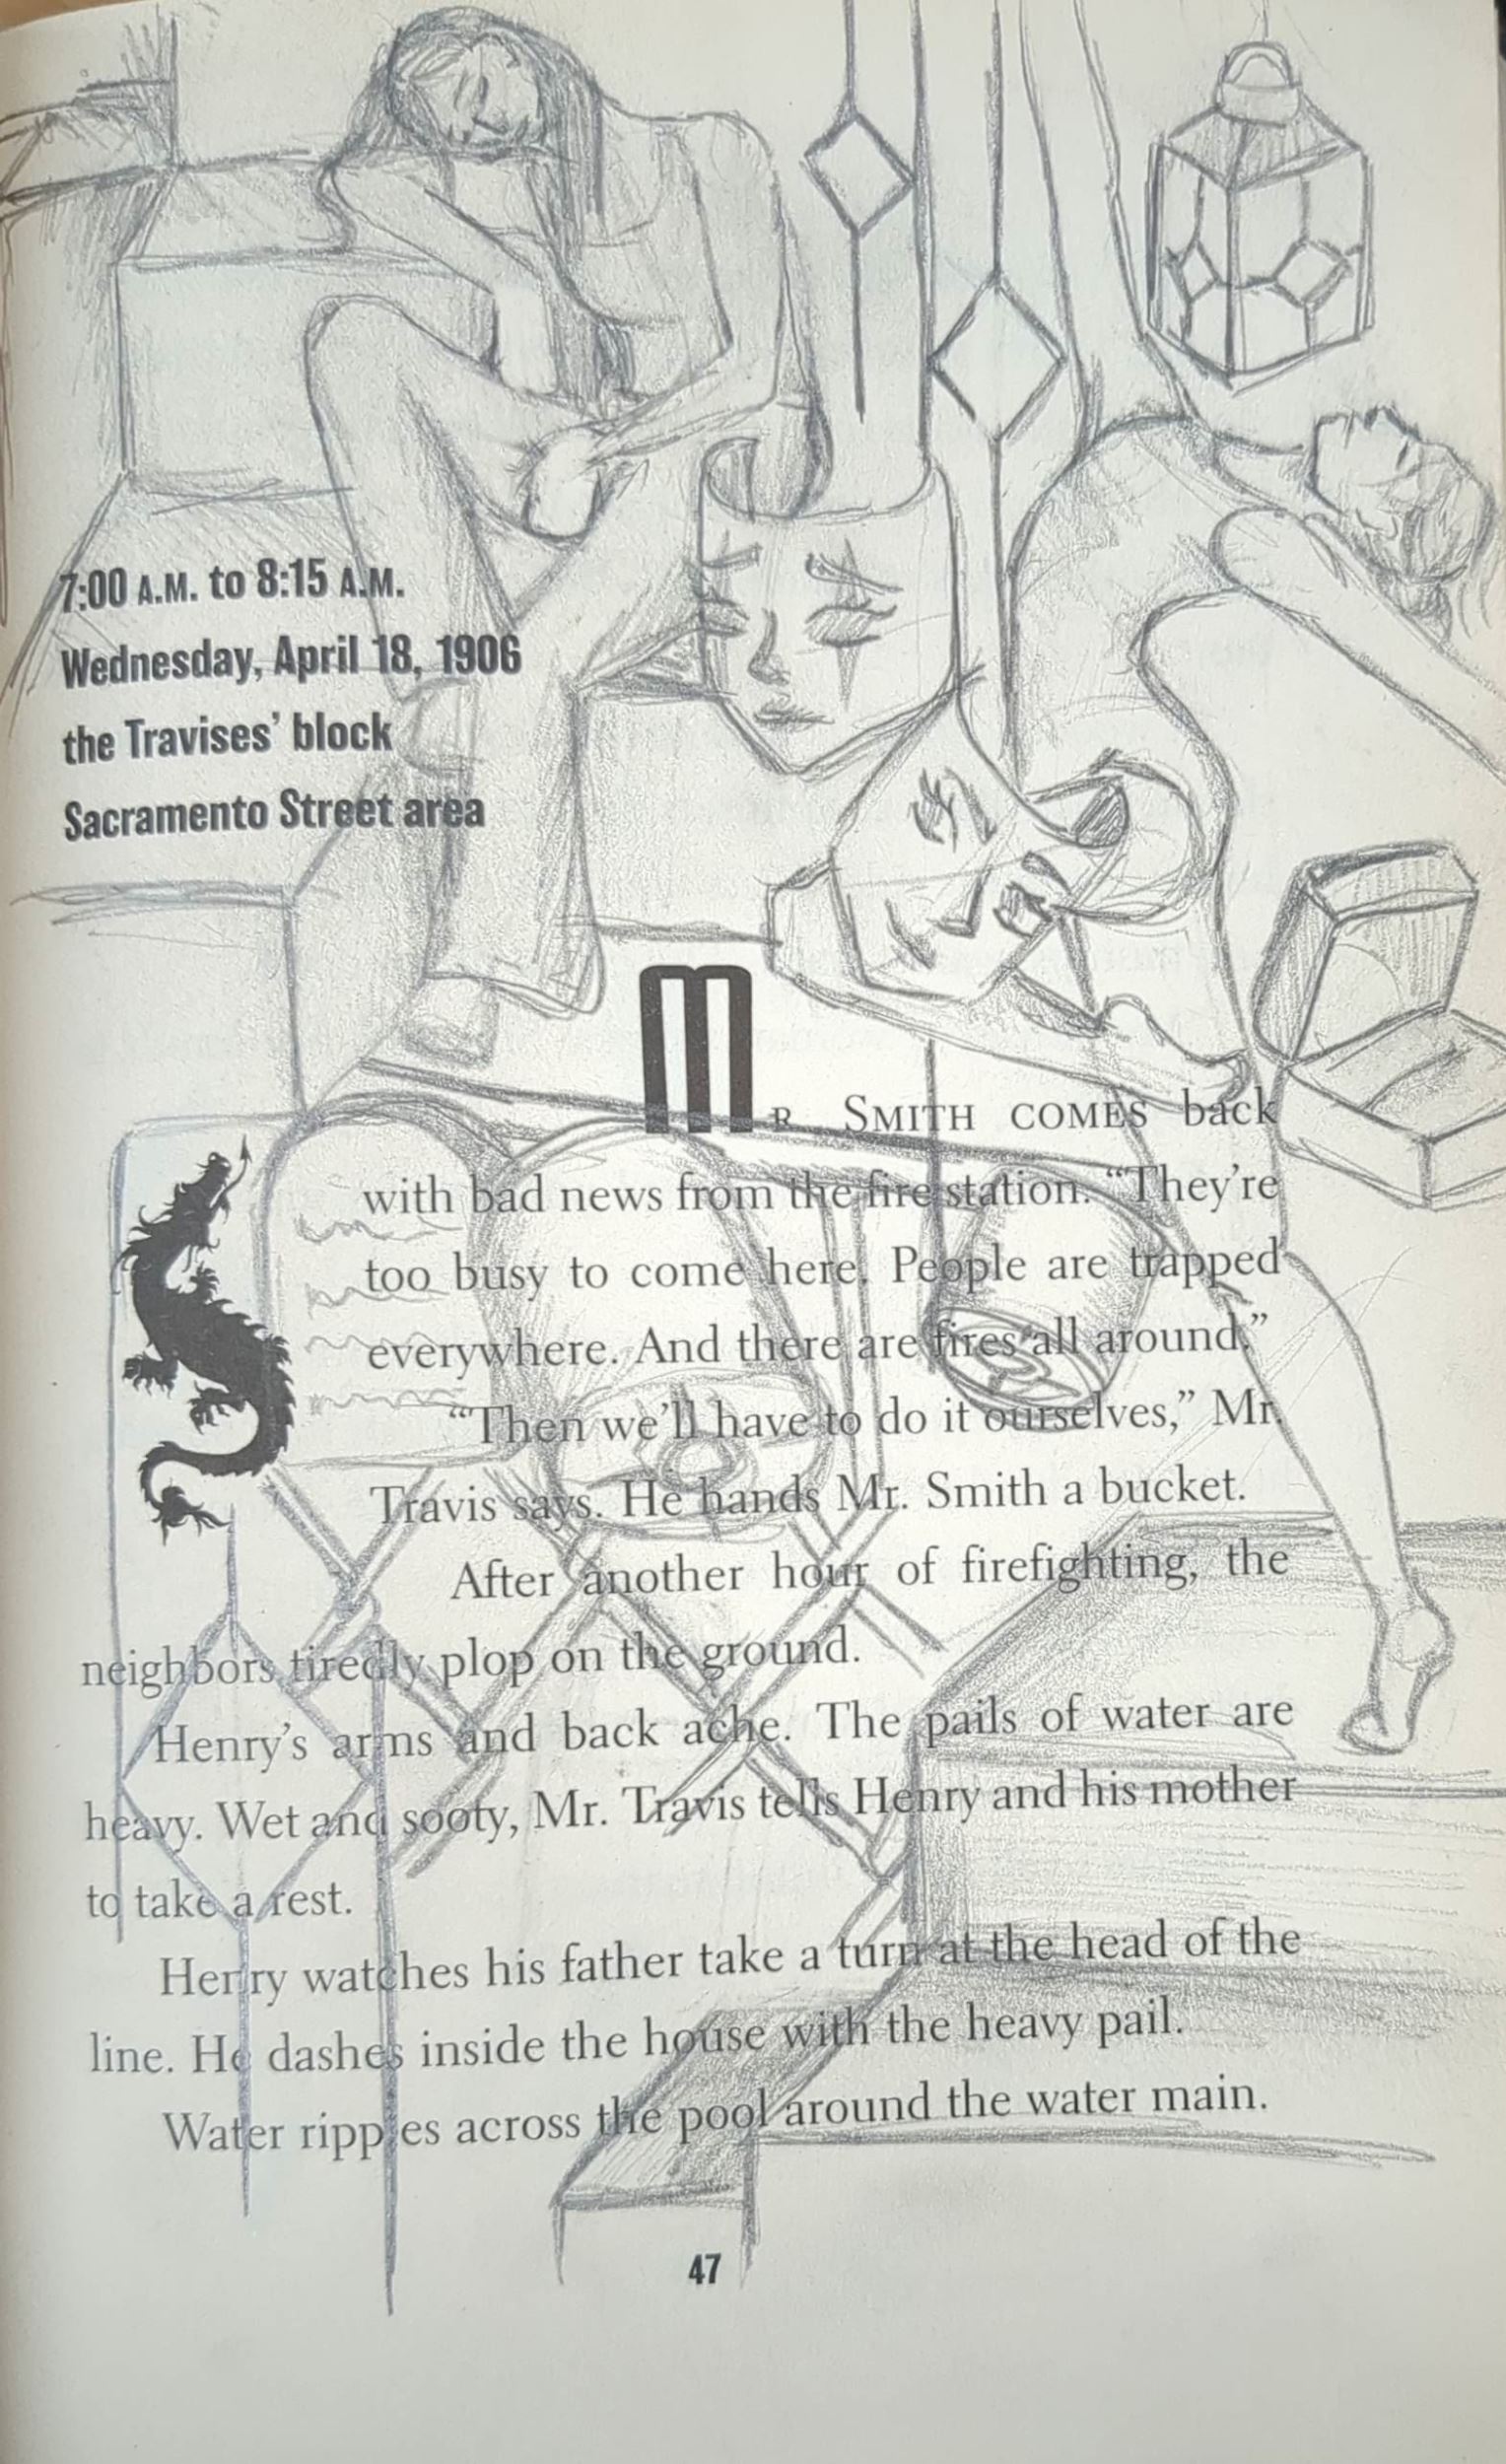 7:00 A.M. to 8:15 A.M.
Wednesday, April 18, 1906
the Travises’ block
Sacramento Street area
MR. SMITH COMES back
with bad news from the fire station. “They’re
too busy to come here. People are trapped
everywhere. And there are fires all around.”
“Then we’ll have to do it ourselves,” Mr.
Travis says. He hands Mr. Smith a bucket.
After another hour of firefighting, the
neighbors tiredly plop on the ground.
Henry’s arms and back ache. The pails of water are
heavy. Wet and sooty, Mr. Travis tells Henry and his mother
to take a rest.
Henry watches his father take a turn at the head of the
line. He dashes inside the house with the heavy pail.
Water ripples across the pool around the water main.
47